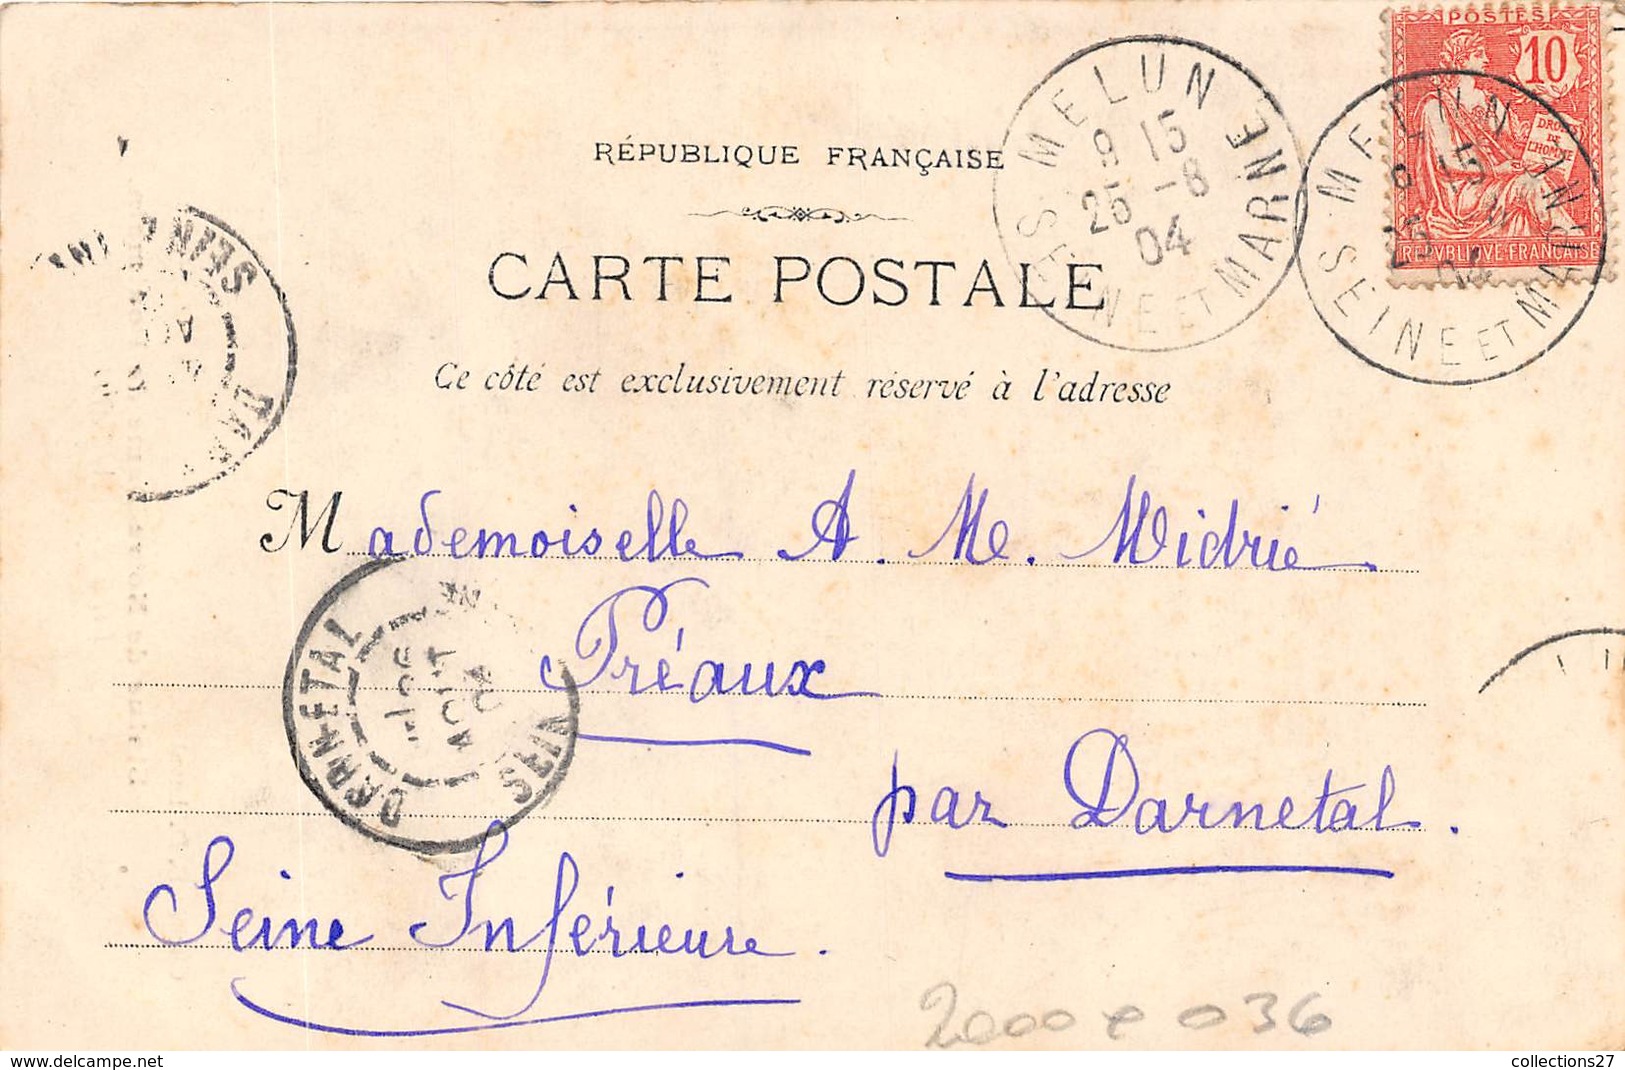 POSTES
10
DROITS
DE
L'HOMME
REPVBLIQVE FRANÇAISE
MELUN
8 15
25 -8
04
SEINE ET MARNE
MELUN
8 15
25
04
SEINE ET MARNE
RÉPUBLIQUE FRANÇAISE
CARTE POSTALE
Ce côté est exclusivement réservé à l'adresse
Mademoiselle A. M. Midrié
Préaux
par Darnetal.
Seine Inférieure.
DARNETAL
AOUT
04
SEINE
SEINE
2000 036
collections27